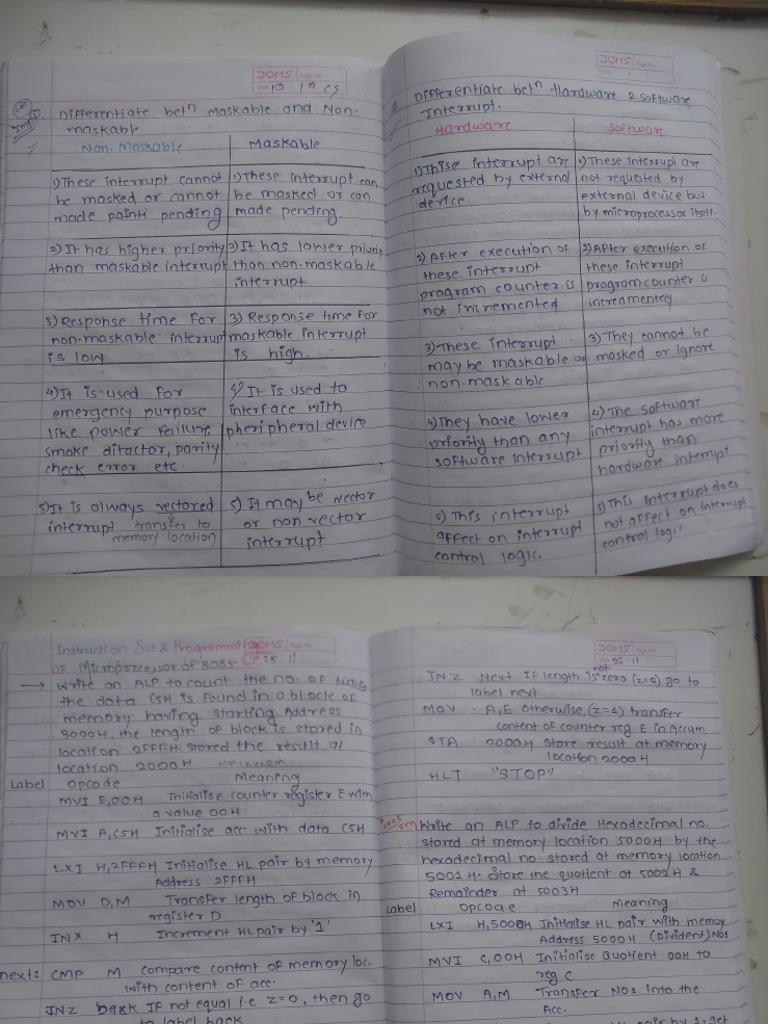 DOMS Page No.
Date 10 10 25
Imp
Differentiate betn Maskable and Non-
maskabl
Non. Maskable Maskable
1) These interrupt cannot
be masked or cannot
made painti pending
1) These interrupt can
be masked or can
made pending.
2) It has higher priority
than maskable interrupt
2) It has lower priority
than non-maskable
interrupt
3) Response time for
non-maskable interrupt
is low
3) Response time for
maskable interrupt
is high.
4) It is used for
emergency purpose
like power failure,
smoke ditactor, parity
check error etc.
4) It is used to
interface with
pheripheral device
5) It is always vectored
interrupt transfer to
memory location
5) It may be vector
or non vector
interrupt
DOMS Page No.
Date
Q. Differentiate betn Hardware & software
Interrupt.
Hardware Software
1) Thise interrupt are
requested by external
device
1) These Interrupt are
not requested by
external device but
by microprocessor itself.
2) After execution of
these interrupt
program counter is
not incremented
2) After execution of
these interrupt
program counter is
increamented
3) These interrupt
may be maskable or
non-maskable
3) They cannot be
masked or ignore
4) They have lower
priority than any
software interrupt
4) The software
interrupt has more
priority than
hardware interrupt
5) This interrupt
affect on interrupt
control logic.
5) This interrupt does
not affect on interrupt
control logi
DOMS Page No.
25 11
Instruction Set & Programming
of Microprocessor of 8085
→ Write an ALP to count the no. of times
the data C5H is found in a block of
memory having starting Address
3000H, the length of block is stored in
location 2FFFH. Stored the result at
location 2000H
Label Opcode Meaning
MVI E,00H Initialise counter register E with
a value 00H
MVI A,C5H Initialise acc with data C5H
LXI H,2FFFH Initialise HL pair by memory
Address 2FFFH
MOV D,M Transfer length of block in
register D
INX H Increment HL pair by '1'
next: CMP M compare content of memory loc.
with content of acc.
JNZ back If not equal i.e z=0, then go
to label back
DOMS Page No.
25 11
JNZ Next If length is not zero (z=0) go to
label next
MOV A,E otherwise, (z=1) transfer
content of counter reg E in Accum.
STA 2000H store result at memory
location 2000H
HLT "STOP"
Write an ALP to divide Hexadecimal no.
stored at memory location 5000H by the
hexadecimal no. stored at memory location
5001H. Store the quotient at 5002H &
Remainder at 5003H
Label Opcode Meaning
LXI H,5000H Initialise HL pair with memoy
Address 5000H. (Divident) No1
MVI C,00H Initialise Quotient 00H to
reg C
MOV A,M Transfer No1 into the
Acc.